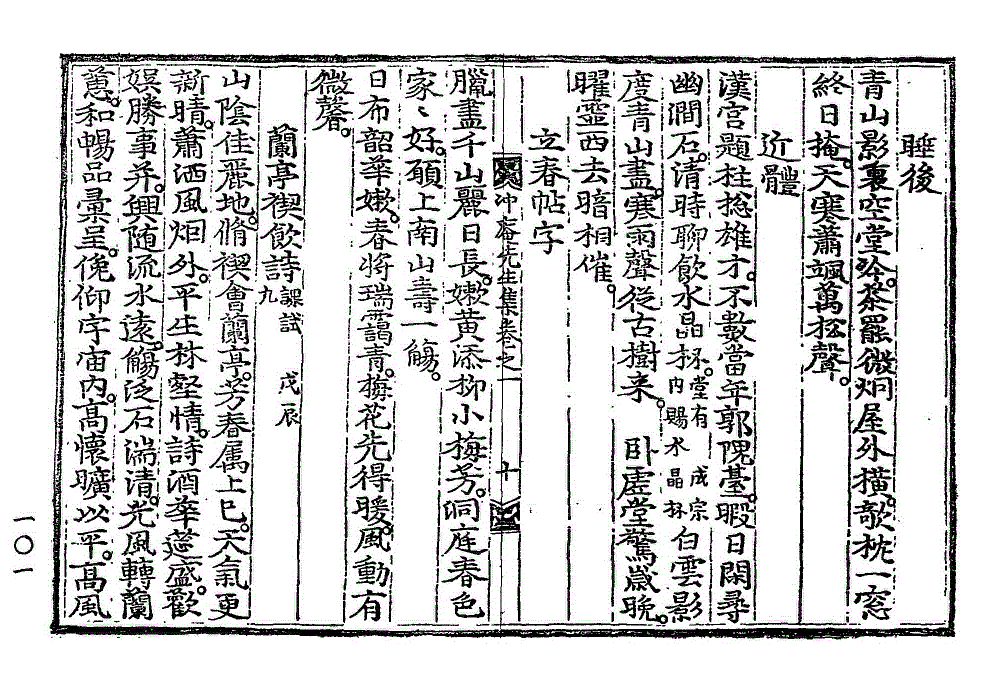 睡後
青山影裏空堂冷。茶罷微烟屋外橫。欹枕一窓
終日掩。天寒蕭颯萬松聲。
近體
漢宮題柱捴雄才。不數當年郭隗臺。暇日閑尋
幽澗石。清時聊飲水晶杯。堂有成宗內賜水晶杯 白雲影
度青山盡。寒雨聲從古樹来。 卧虛堂驚歲晚。
曜靈西去暗相催。
立春帖字
冲庵先生集卷之一 十
臘盡千山麗日長。嫩黃添柳小梅芳。洞庭春色
家〻好。願上南山壽一觴。
日布韶華嫩。春將瑞靄青。梅花先得暖。風動有
微馨。
蘭亭禊飮詩 課試九 戊辰
山陰佳麗地。脩禊會蘭亭。芳春屬上巳。天氣更
新晴。蕭洒風烟外。平生林壑情。詩酒華筵盛。歡
娛勝事并。興随流水遠。觴泛石湍清。光風轉蘭
蕙。和暢品彙呈。俛仰宇宙內。高懷曠以平。高風
一〇一